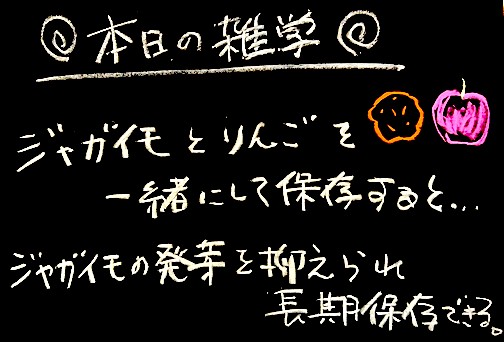 @ 本日の雑学 @
ジャガイモとりんごを
一緒にして保存すると...
ジャガイモの発芽を抑えられ
長期保存できる。